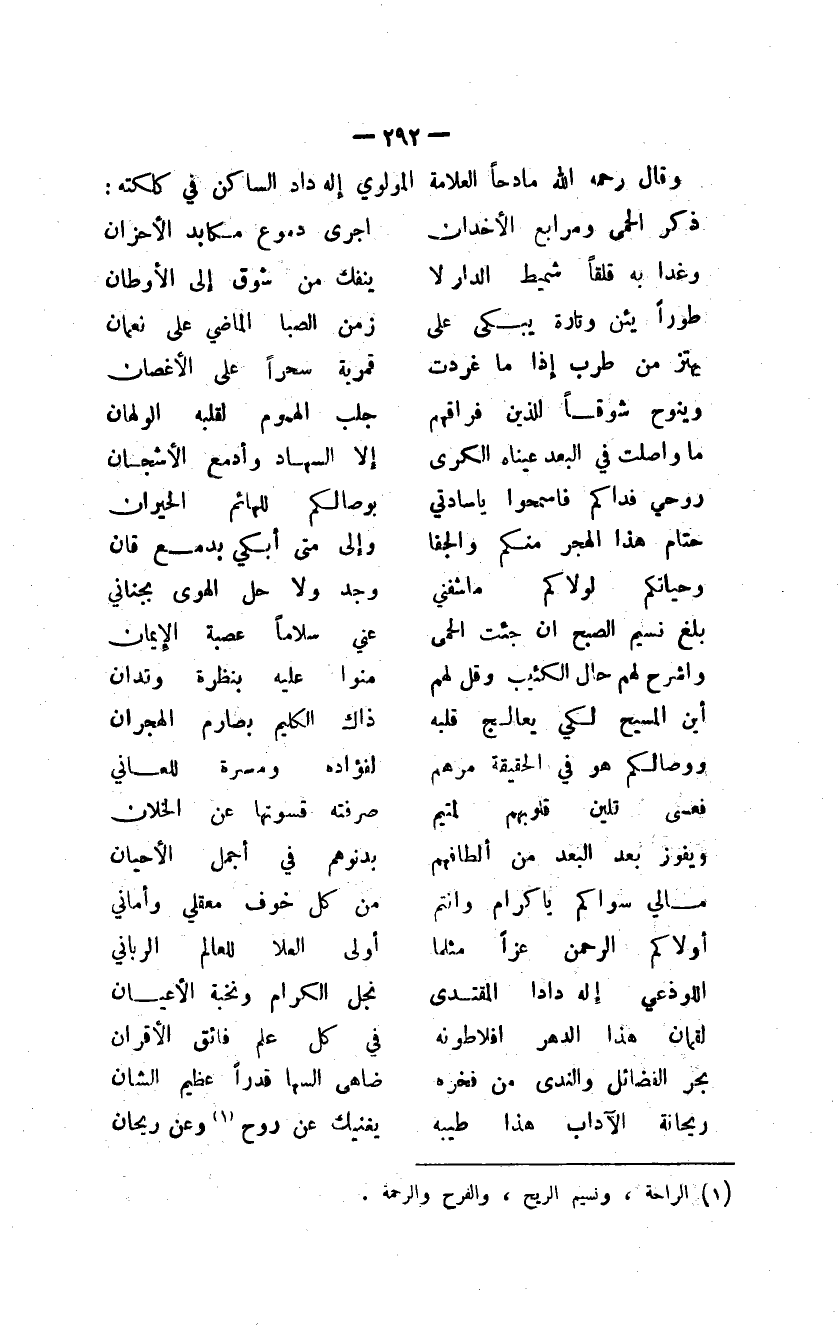 — ٢٩٢ —
وقال رحمه الله مادحاً العلامة المولوي إله داد الساكن في كلكته :
ذكر الحمى ومرابع الأخدان اجرى دموع مكابد الأحزان
وغدا به قلقاً شميط الدار لا ينفك من شوق إلى الأوطان
طوراً يئن وتارة يبكى على زمن الصبا الماضي على نعمان
يهتز من طرب إذا ما غردت قمرية سحراً على الأغصان
وينوح شوقاً للذين فراقهم جلب الهموم لقلبه الولهان
ما واصلت في البعد عيناه الكرى إلا السهاد وأدمع الأشجان
روحي فداكم فاسمحوا ياسادتي بوصالكم للهائم الحيران
حتام هذا الهجر منكم والجفا وإلى متى أبكي بدمع قان
وحياتكم لولاكم ماشفني وجد ولا حل الهوى بجناني
بلغ نسيم الصبح ان جئت الحمى عني سلاماً عصبة الإيمان
واشرح لهم حال الكئيب وقل لهم منوا عليه بنظرة وتدان
أين المسيح لكي يعالج قلبه ذاك الكليم بصارم الهجران
ووصالكم هو في الحقيقة مرهم لفؤاده ومسرة للعاني
فعسى تلين قلوبهم لمتيم صرفته قسوتها عن الخلان
ويفوز بعد البعد من ألطافهم بدنوهم في أجمل الأحيان
مالي سواكم ياكرام وانتم من كل خوف معقلي وأماني
أولاكم الرحمن عزاً مثلما أولى العلا للعالم الرباني
اللوذعي إله دادا المقتدى نجل الكرام ونخبة الأعيان
لقمان هذا الدهر افلاطونه في كل علم فائق الأقران
بحر الفضائل والندى من فخره ضاهى السها قدراً عظيم الشان
ريحانة الآداب هذا طيبه يغنيك عن روح (١) وعن ريحان
(١) الراحة ، ونسيم الريح ، والفرح والرحمة .